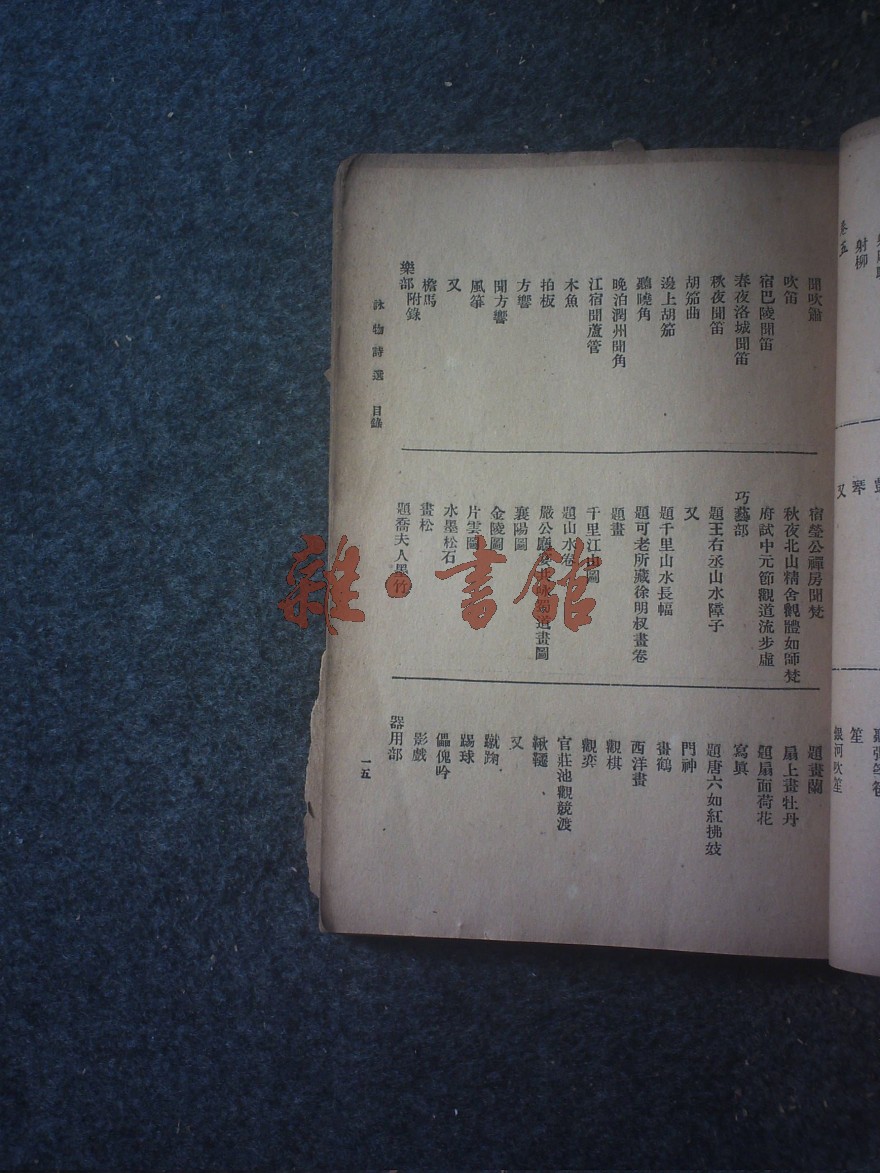 聞吹簫
吹笛
宿巴陵聞笛
春夜洛城聞笛
秋夜聞笛
胡笳曲
邊上胡笳
聽曉角
晚泊潤州聞角
江宿聞蘆管
木魚
拍板
方響
聞方響
風箏
又
檐馬
樂部附錄
宿瑩公禪房聞梵
秋夜北山精舍觀體如師梵
府試中元節觀道流步虛
巧藝部
題王右丞山水障子
又
題千里山水長幅
題可老所藏徐明叔畫卷
題畫
千里江山圖
題山水卷
嚴公廳宴 畫圖
襄陽圖
金陵圖
片雲圖
水墨松石
畫松
題喬夫人墨竹
題畫蘭
扇上畫牡丹
題扇面荷花
寫眞
題唐六如紅拂妓
門神
畫鶴
西洋畫
觀棋
觀弈
官莊池觀競渡
鞦韆
又
蹴踘
踢球
傀儡吟
影戲
器用部
詠物詩選 目錄
一五
卷五
射柳
琴
又
笙
銀河吹笙
雜·書館